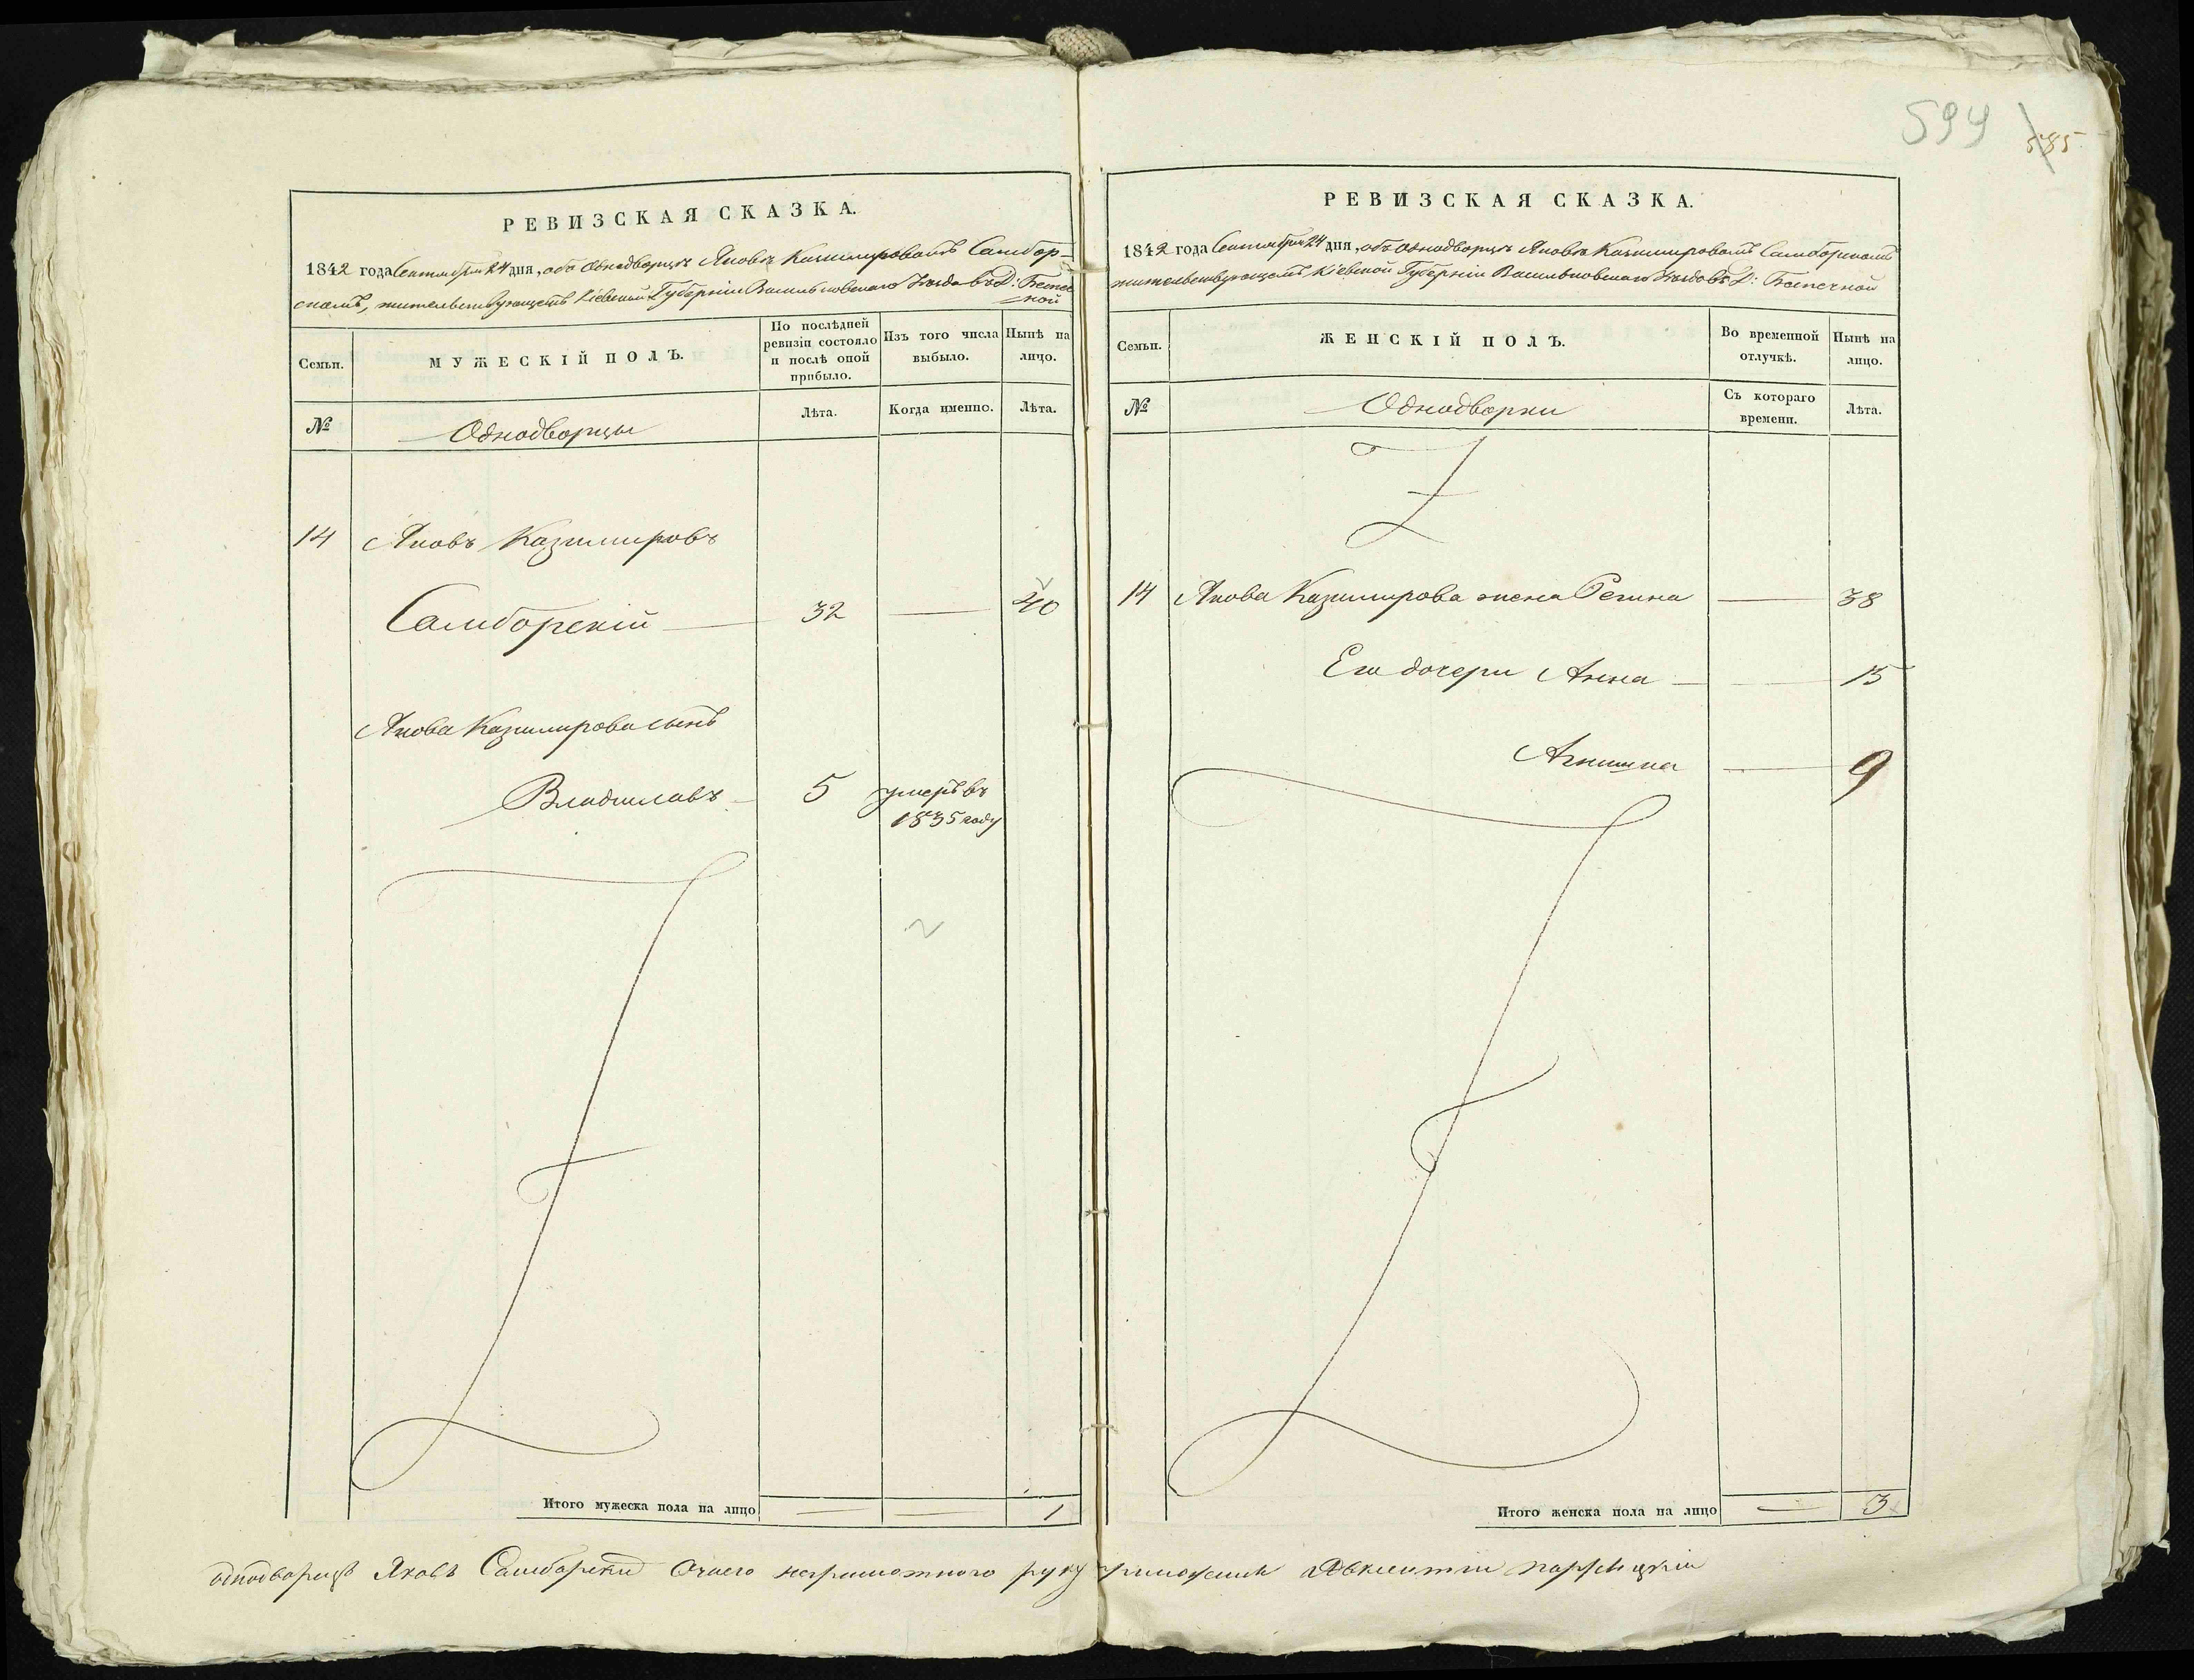 594 585
РЕВИЗСКАЯ СКАЗКА.
1842 года Сентября 24 дня, объ Однодворцѣ Яковѣ Казимировомъ Самбор-
скомъ, жительствующемъ Кіевской Губерніи Васильковскаго Уѣзда въ Д:
Семьи.
МУЖЕСКІЙ ПОЛЪ.
По послѣдней ревизіи состояло и послѣ оной прибыло.
Изъ того числа выбыло.
Нынѣ на лицо.
№
Однодворцы
Лѣта.
Когда именно.
Лѣта.
14 Яковъ Казимировъ
Самборскій 32 — 40
Якова Казимирова сынъ
Владиславъ 5 умеръ въ
1835 году
Итого мужеска пола на лицо — — 1
РЕВИЗСКАЯ СКАЗКА.
1842 года Сентября 24 дня, объ Однодворцѣ Яковѣ Казимировомъ Самборскомъ
жительствующемъ Кіевской Губерніи Васильковскаго Уѣзда въ Д:
Семьи.
ЖЕНСКІЙ ПОЛЪ.
Во временной отлучкѣ.
Нынѣ на лицо.
№
Однодворки
Съ котораго времени.
Лѣта.
14 Якова Казимирова жена Регина — 38
Его дочери Анна — 15
Агнишка — 9
Итого женска пола на лицо — 3
однодворецъ Яковъ Самборскій Оного неграмотного руку приложилъ